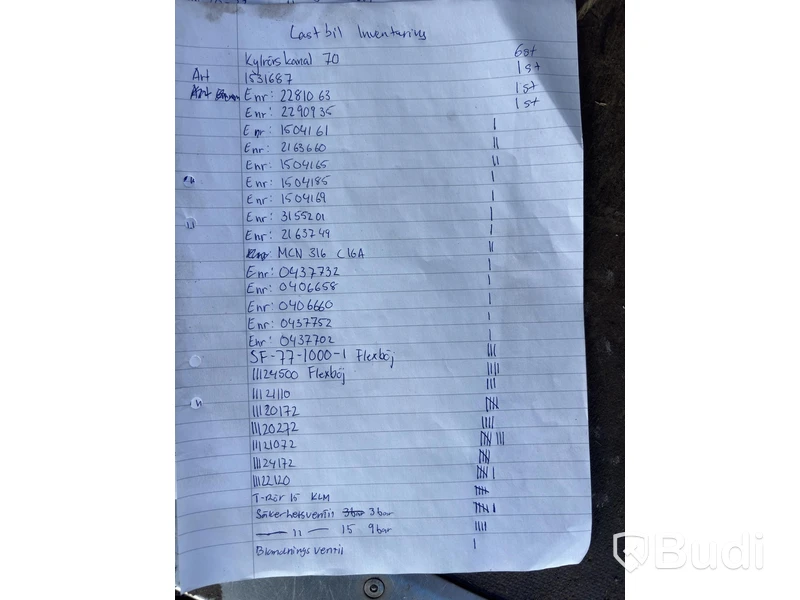 Lastbil Inventarius
Kylrörskanal 70 6st
Art 1531687 1st
Art Enr: 2281063 1st
Enr: 2290935 1st
Enr: 1504161 I
Enr: 2163660 II
Enr: 1504165 II
Enr: 1504185 I
Enr: 1504169 I
Enr: 3155201 I
Enr: 2163749 I
MCN 316 C16A II
Enr: 0437732 I
Enr: 0406658 I
Enr: 0406660 I
Enr: 0437752 I
Enr: 0437702 I
SF-77-1000-1 Flexböj III
11124500 Flexböj IIII
11121110 III
11120172 IIII
11120272 IIII
11121072 IIII III
11124172 IIII
11122120 IIII I
T-Rör 15 KLM IIII
Säkerhetsventil 3bar 3bar IIII I
— 11 — 15 9bar IIII
Blandningsventil I
Budi